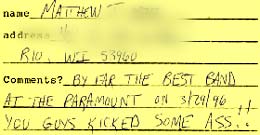 name MATTHEW T
address
RIO, WI 53960
Comments? BY FAR THE BEST BAND
AT THE PARAMOUNT ON 3/29/96 !!
YOU GUYS KICKED SOME ASS..